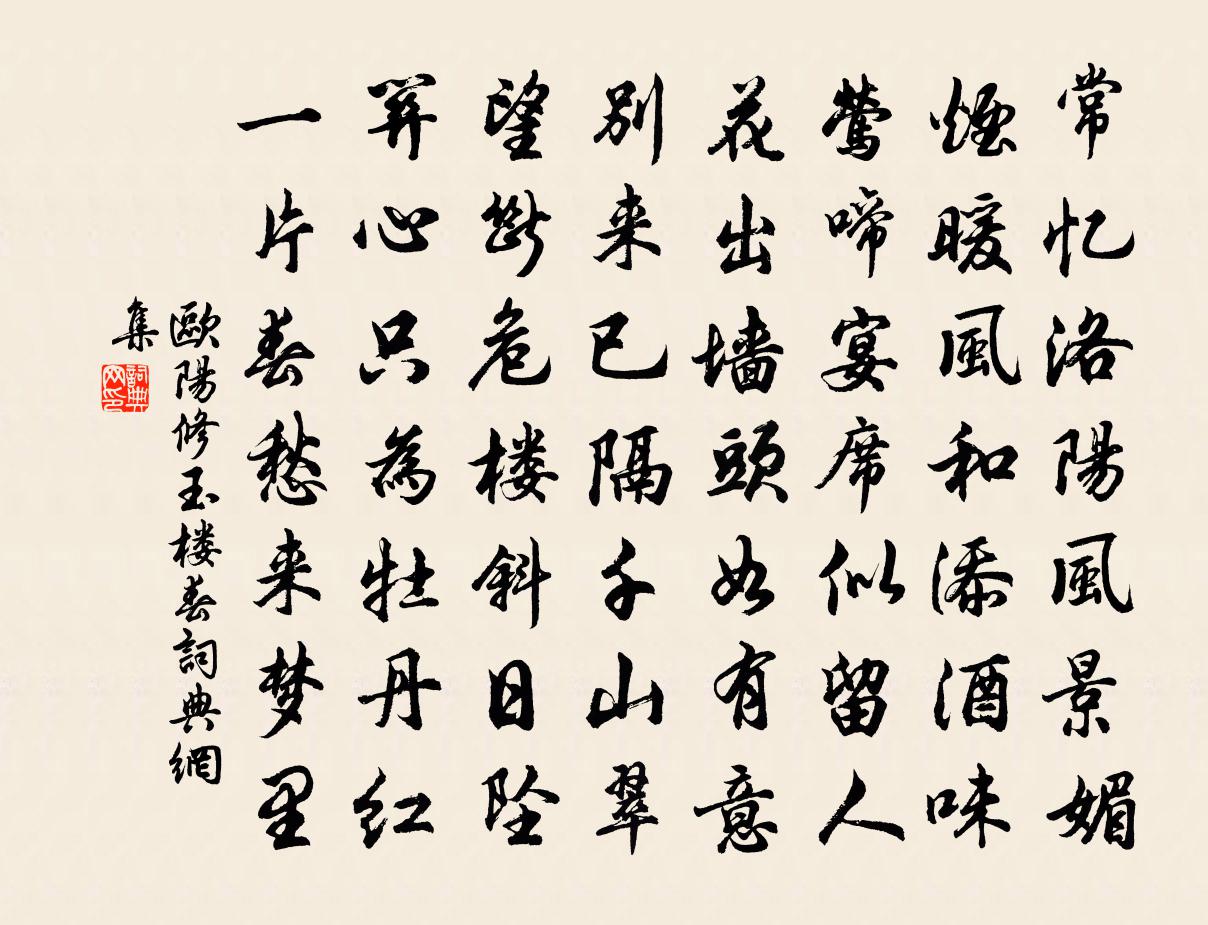 常忆洛陽風景媚
煙暖風和添酒味
莺啼宴席似留人
花出墙頭如有意
别来已隔千山翠
望断危楼斜日坠
關心只為牡丹红
一片春愁来梦里
歐陽修玉楼春詞典網
集
詞典
网印